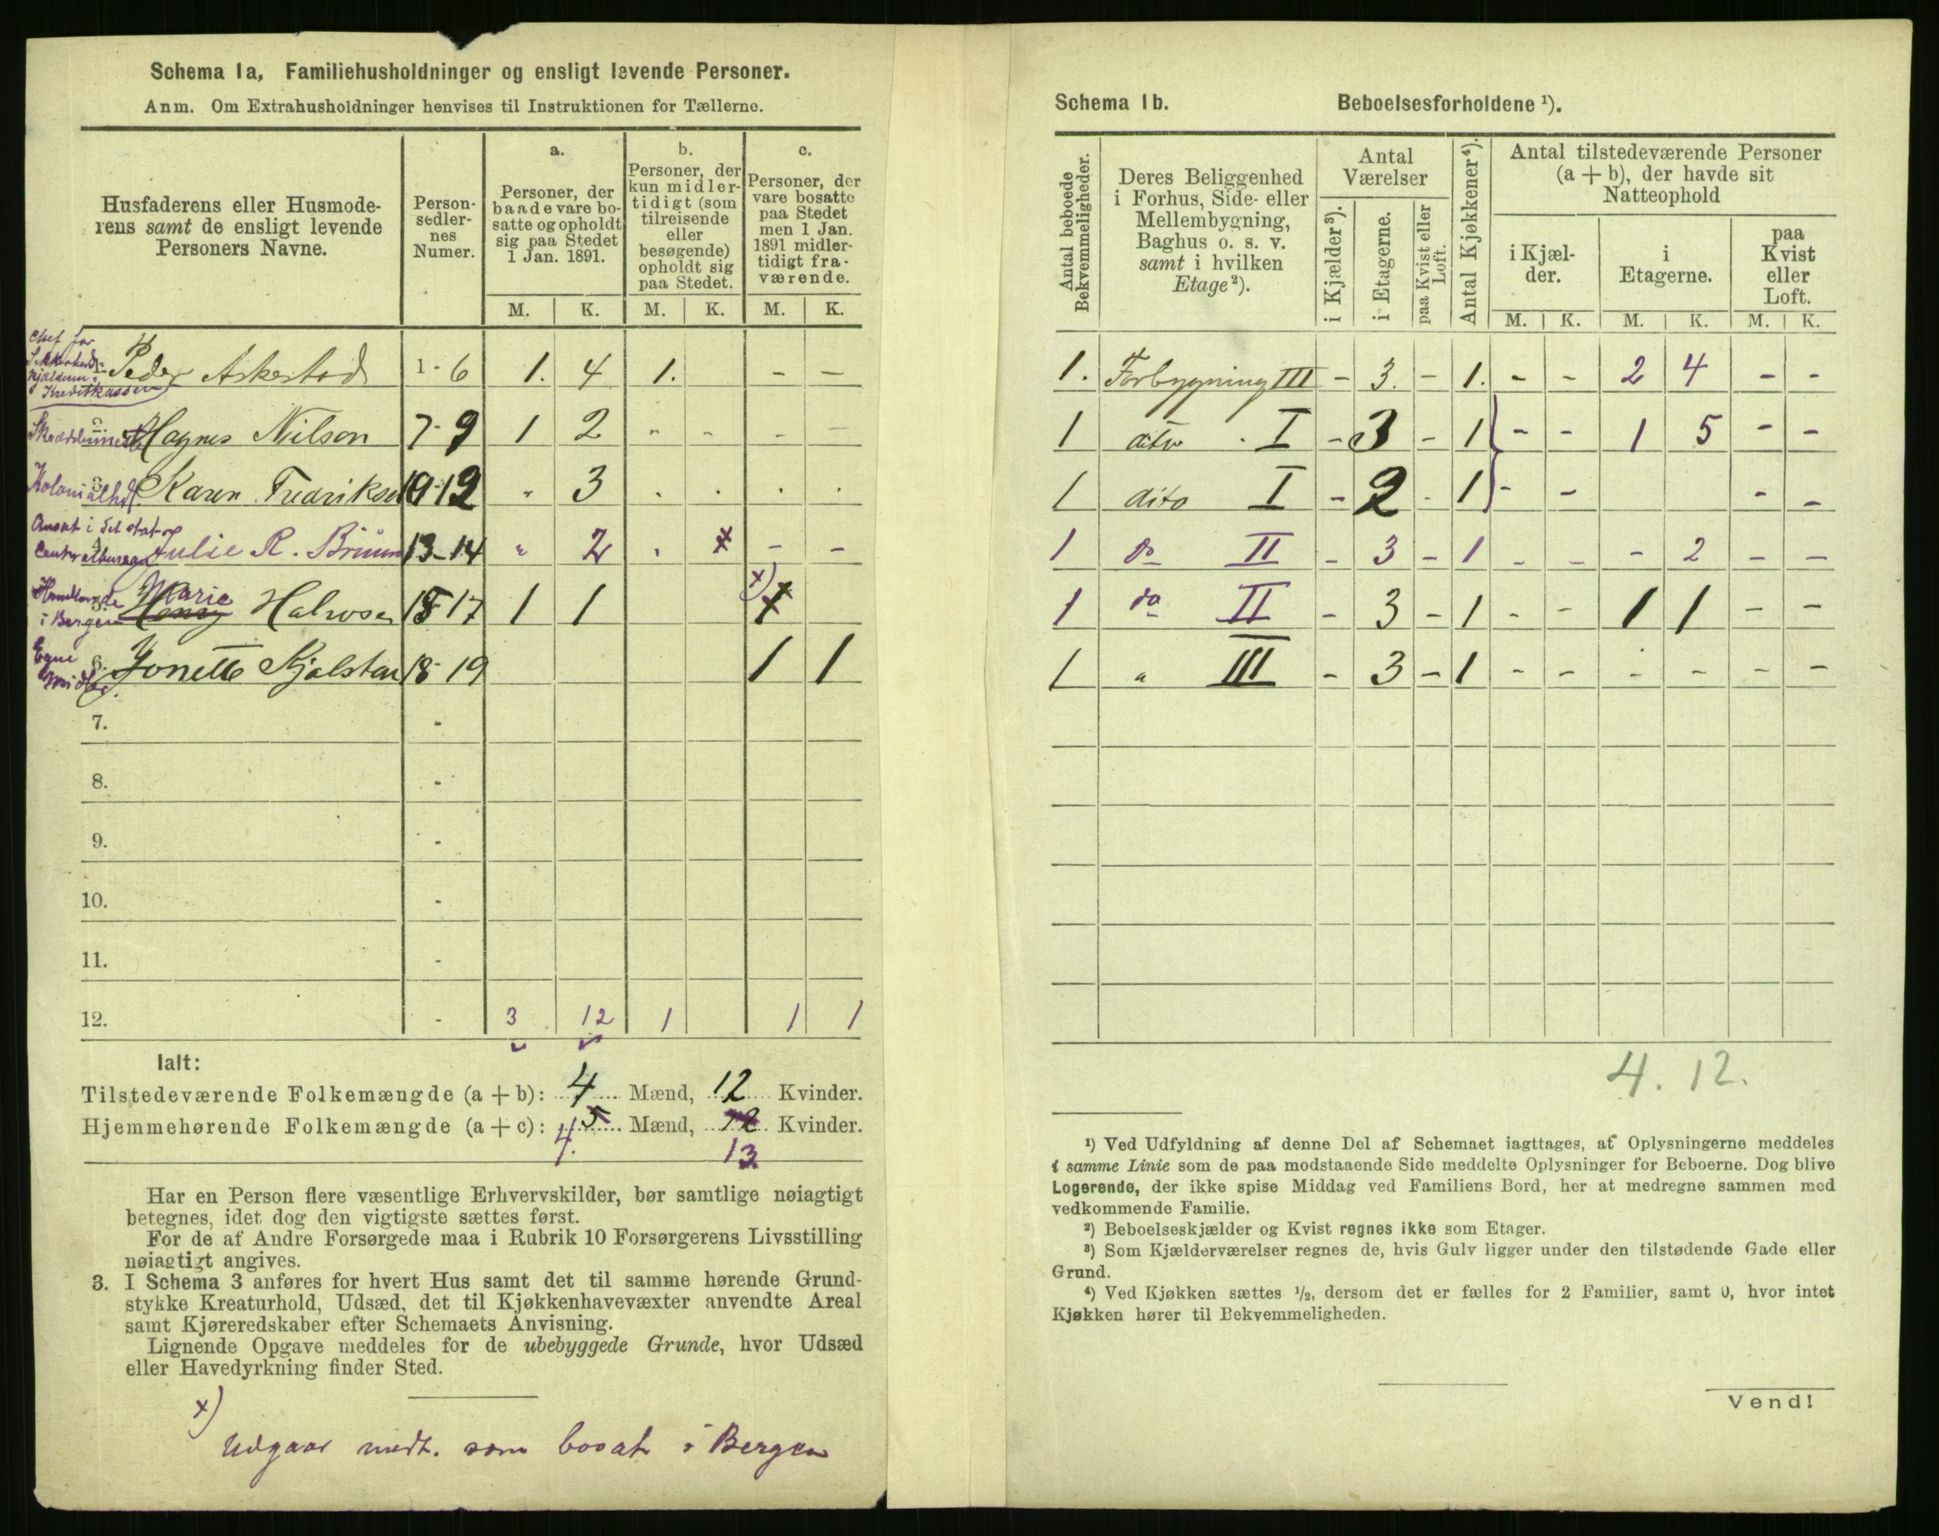 Schema 1a, Familiehusholdninger og ensligt levende Personer.
Anm. Om Extrahusholdninger henvises til Instruktionen for Tællerne.
Husfaderens eller Husmode-
rens samt de ensligt levende
Personers Navne.
Person-
sedler-
nes
Numer.
a.
Personer, der
baade vare bo-
satte og opholdt
sig paa Stedet
1 Jan. 1891.
b.
Personer, der
kun midler-
tidigt (som
tilreisende
eller
besøgende)
opholdt sig
paa Stedet.
c.
Personer, der
vare bosatte
paa Stedet
men 1 Jan.
1891 midler-
tidigt fra-
værende.
M. K. M. K. M. K.
Chef for
Kreditkassen
Peder Askestad 1 - 6 1. 4 1. - -
Hagnes Nilson 7 - 9 1 2 - - - -
Karen Fredriksen 10-12 " 3 . . . .
Ansat i det stat.
Julie R. Bruun 13-14 " 2 . x - -
Handlende
i Bergen
Marie
Halvosen 15-17 1 1 x)
Egne
Midler.
6. Jonette Kjølstad 18-19 1 1
7. -
8. -
9. -
10. -
11. -
12. - 3 12 1 1 1
Ialt:
Tilstedeværende Folkemængde (a + b): 4 Mænd, 12 Kvinder.
Hjemmehørende Folkemængde (a + c): 5 Mænd, 12 Kvinder.
4. 13
Har en Person flere væsentlige Erhvervskilder, bør samtlige nøiagtigt
betegnes, idet dog den vigtigste sættes først.
For de af Andre Forsørgede maa i Rubrik 10 Forsørgerens Livsstilling
nøiagtigt angives.
3. I Schema 3 anføres for hvert Hus samt det til samme hørende Grund-
stykke Kreaturhold, Udsæd, det til Kjøkkenhavevæxter anvendte Areal
samt Kjøreredskaber efter Schemaets Anvisning.
Lignende Opgave meddeles for de ubebyggede Grunde, hvor Udsæd
eller Havedyrkning finder Sted.
x)
Udgaar medt. som bosat i Bergen
Schema 1b. Beboelsesforholdene ¹).
Antal beboede
Bekvemmeligheder.
Deres Beliggenhed
i Forhus, Side- eller
Mellembygning,
Baghus o. s. v.
samt i hvilken
Etage²).
Antal
Værelser
i Kjælder³).
i Etagerne.
paa Kvist eller
Loft.
Antal Kjøkkener⁴).
Antal tilstedeværende Personer
(a + b), der havde sit
Natteophold
i Kjæl-
der.
i
Etagerne.
paa
Kvist
eller
Loft.
M. K. M. K. M. K.
1. Forbygning III - 3. - 1. - - 2 4 - -
1 dito I - 3 - 1 - - 1 5 - -
1 dito I - 2 - 1 - - - -
1 do II - 3 - 1 - - - 2 - -
1 do II - 3 - 1 - - 1 1 - -
1 " III - 3 - 1 - - - - - -
4. 12.
¹) Ved Udfyldning af denne Del af Schemaet iagttages, at Oplysningerne meddeles
i samme Linie som de paa modstaaende Side meddelte Oplysninger for Beboerne. Dog blive
Logerende, der ikke spise Middag ved Familiens Bord, her at medregne sammen med
vedkommende Familie.
²) Beboelseskjælder og Kvist regnes ikke som Etager.
³) Som Kjælderværelser regnes de, hvis Gulv ligger under den tilstødende Gade eller
Grund.
⁴) Ved Kjøkken sættes ¹/₂, dersom det er fælles for 2 Familier, samt 0, hvor intet
Kjøkken hører til Bekvemmeligheden.
Vend!